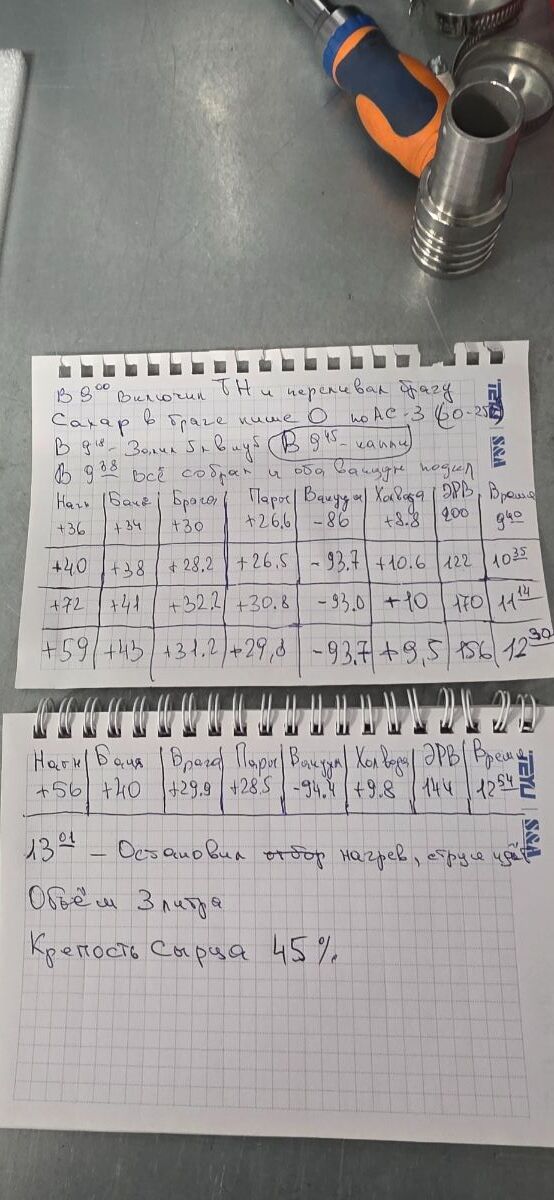 В 9 00 Включил ТН и переливал брагу
Сахар в браге ниже 0 по АС-3 (0-25)
В 9 18 - Залил 5л в куб В 9 45 - капли
В 9 38 всё собрал и оба вакуум
Нагн Баня Брага Пары Вакуум Хол вода ЭРВ Время
+36 +34 +30 +26,6 -86 +8.8 200 9 40
+40 +38 +28.2 +26.5 -93.7 +10.6 122 10 35
+72 +41 +32.2 +30.8 -93.0 +10 170 11 14
+59 +43 +31.2 +29,8 -93.7 +9,5 156 12 30
TEYU S&A
Нагн Баня Брага Пары Вакуум Хол вода ЭРВ Время
+56 +40 +29.9 +28.5 -94.4 +9.8 144 12 54
TEYU S&A
13 01 - Остановил отбор нагрев, струя идёт
Объём 3 литра
Крепость Сырца 45%